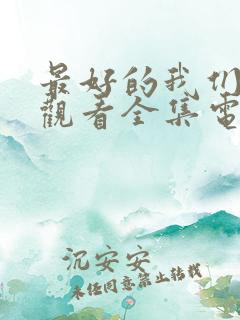 最好的我们
觀看全集電
沉安安
未经同意禁止转载